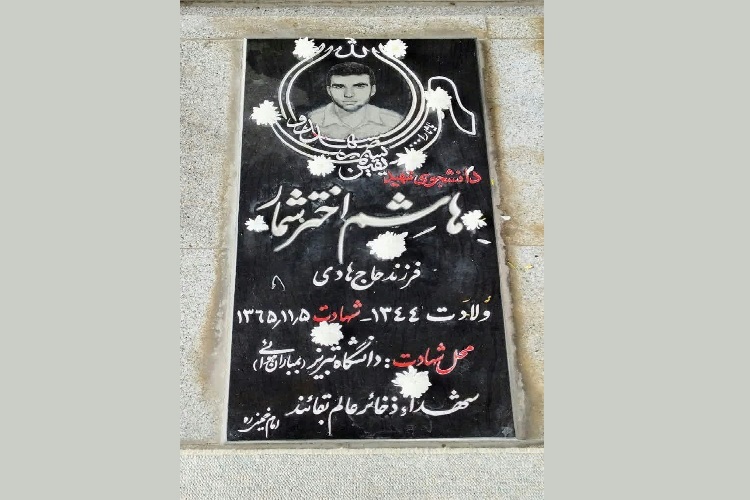 الله
دانشجوی شهید
هاشم اخترشمار
فرزند حاج هادی
ولادت ١٣٤٤ - شهادت ١٣٦٥,١١,٥
محل شهادت : دانشگاه تبریز (بمباران هوائی)
شهداء ذخائر عالم بقائند
امام خمینی ره